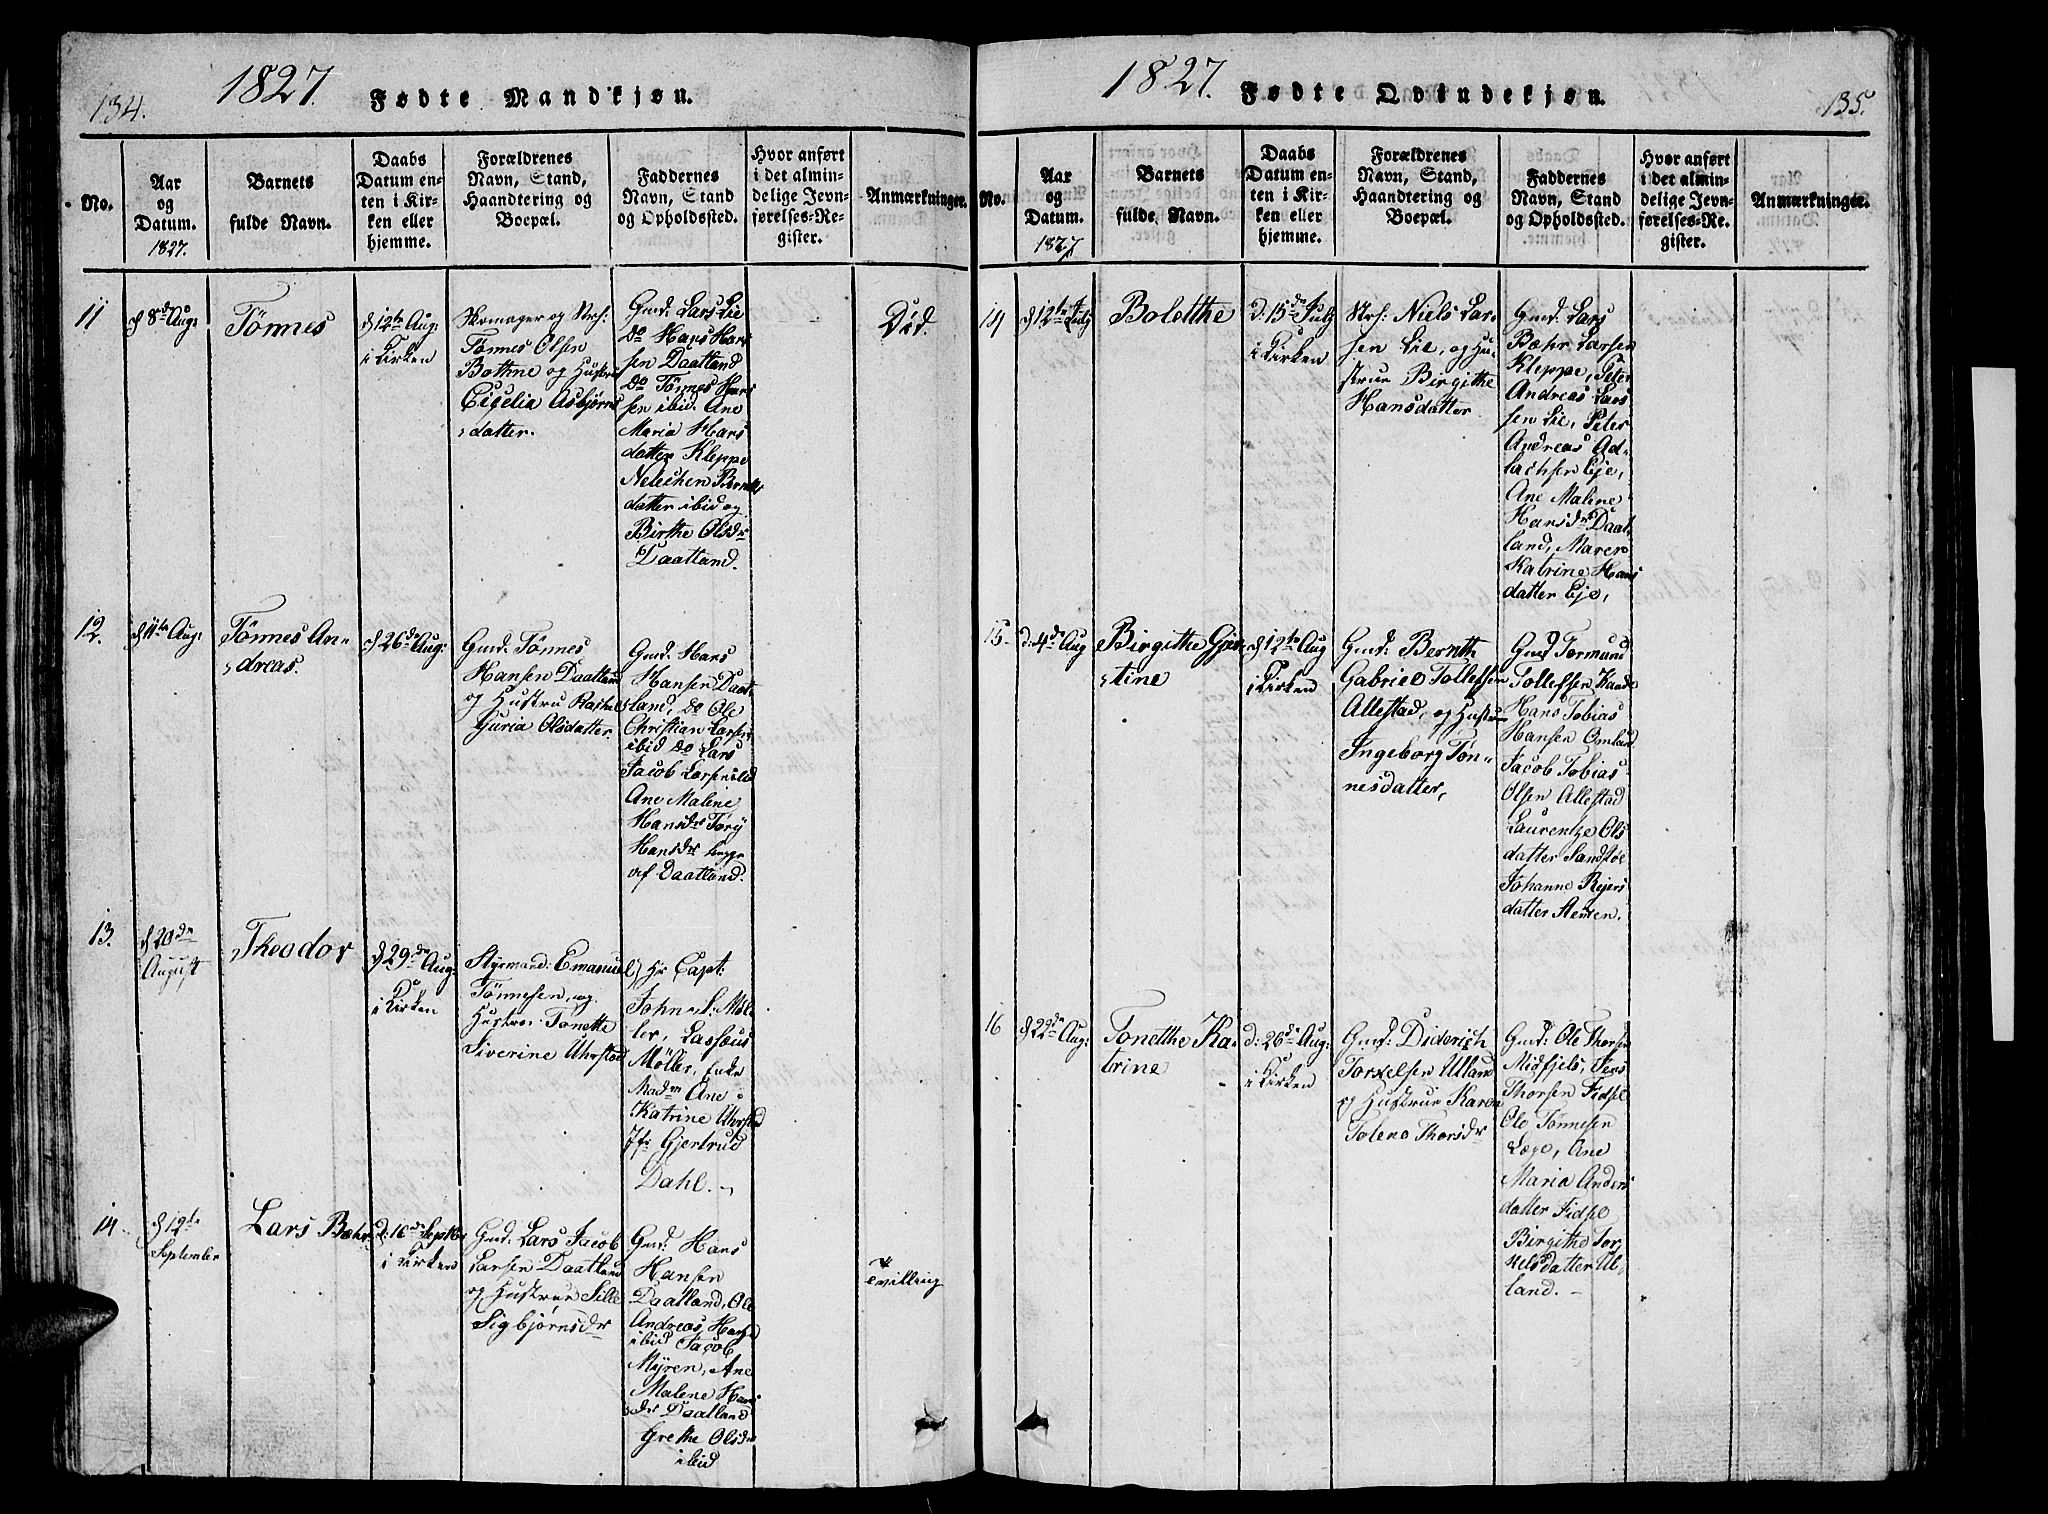 134.
1827.
Fødte Mandkjøn.
No.
Aar
og
Datum.
1827.
Barnets
fulde Navn.
Daabs
Datum en-
ten i Kir-
ken eller
hjemme.
Forældrenes
Navn, Stand,
Haandtering og
Boepæl.
Faddernes
Navn, Stand
og Opholdssted.
Hvor anført
i det almin-
delige Jevn-
førelses-Re-
gister.
Anmærkninger.
11
d 8de Aug:
Tönnes
d 12te Aug:
i Kirken
Skomager og Strs:
Tönnes Olsen
Bothne og Hustru
Cicelia Asbjørns
datter.
Gmd: Lars Lie
Do Hans Han
sen Daatland
Do Tönnes Han
sen ibid. Ane
Maria Hans
datter Kleppe
Nelechen Berntts
datter ibid og
Birthe Olsdr
Daatland.
Död.
12.
d 11te Aug:
Tönnes An-
dreas.
d 26de Aug:
Gmd: Tönnes
Hansen Daatland
og Hustru Rachel
Guria Olsdatter.
Gmd: Hans
Hansen Daat
land, Do Ole
Christian Larsen
ibid Do Lars
Jacob Larsen ibid
Ane Malene
Hansdr Tory
Hansdr begge
af Daatland.
13.
d 20de
August
Theodor
d 29de Aug:
i Kirken
Styrmand: Emanuel
Tönnesen, og
Hustru Tonette
Siverine Uhrstad
Hr Capt:
John S: Möl
ler, Lassæus
Möller, Enke
Madm Ane
Katrine Uhrstad
Jfr Gjertrud
Dahl.
14
d 12te
September
Lars Bæhr
d: 16de Septbr
i Kirken
Gmd: Lars Jacob
Larsen Daatland
og Hustrue Sille
Sigbjørnsdr
Gmd: Hans
Hansen
Daatland, Ole
Andreas Hansen
ibid Jacob
Myren, Ane
Malene Hans
dr Daatland
Grethe Olsdr
ibid
Tvilling
1827.
Fødte Qvindekjøn.
135.
No.
Aar
og
Datum.
1827
Barnets
fulde Navn.
Daabs
Datum en-
ten i Kir-
ken eller
hjemme.
Forældrenes
Navn, Stand,
Haandtering og
Boepæl.
Faddernes
Navn, Stand
og Opholdssted.
Hvor anført
i det almin-
delige Jevn-
førelses-Re-
gister.
Anmærkninger.
14
d 12te July
Boletthe
d. 15de July
i Kirken
Strs: Niels Lar
sen Lie, og Hu-
strue Birgithe
Hansdatter
Gmd: Lars
Bæhr Larsen
Kleppe, Peter
Andreas Lars
sen Lie, Peter
Andreas Ad-
lachsen Eje,
Ane Malene
Hansdr Daat
land, Maren
Katrine Hans
datter Eje,
15.
d: 4de Aug
Birgithe Gjer-
tine
d 12te Aug
i Kirken
Gmd: Bernth
Gabriel Tollefsen
Allestad, og Hustrue
Ingeborg Tön-
nesdatter,
Gmd Tormund
Tollefsen Kande
Hans Tobias
Hansen Omland
Jacob Tobias
Olsen Allestad
Laurentze Ols
datter Sandstøe
Johanne Rejers
datter Steen.
16
d 22de Aug:
Tonetthe Ka-
trine
d: 26de Aug:
i Kirken
Gmd: Diderich
Torkelsen Ulland
og Hustrue Karen
Tolene Thorsdr
Gmd: Ole Thorsen
Midfjels, Jens
Thorsen Fidsel
Ole Tönnesen
Læge, Ane
Maria Anders
datter Fidsel
Birgithe Tor
kelsdatter Ul-
land.